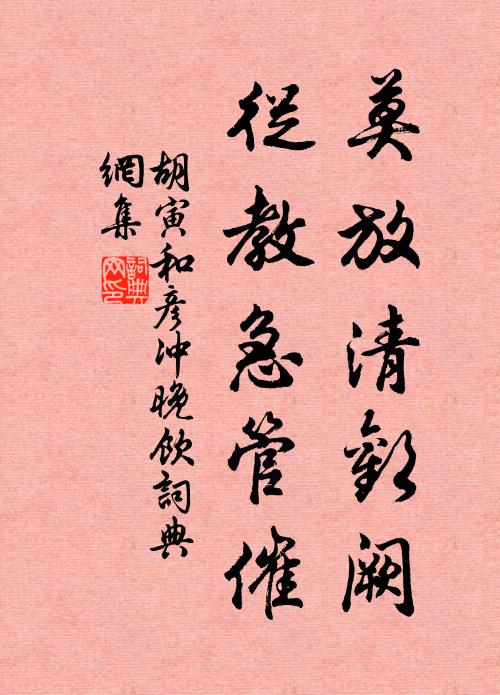 莫放清歡闕
從教急管催
胡寅和彥冲晚飲詞典
網集
詞典網印